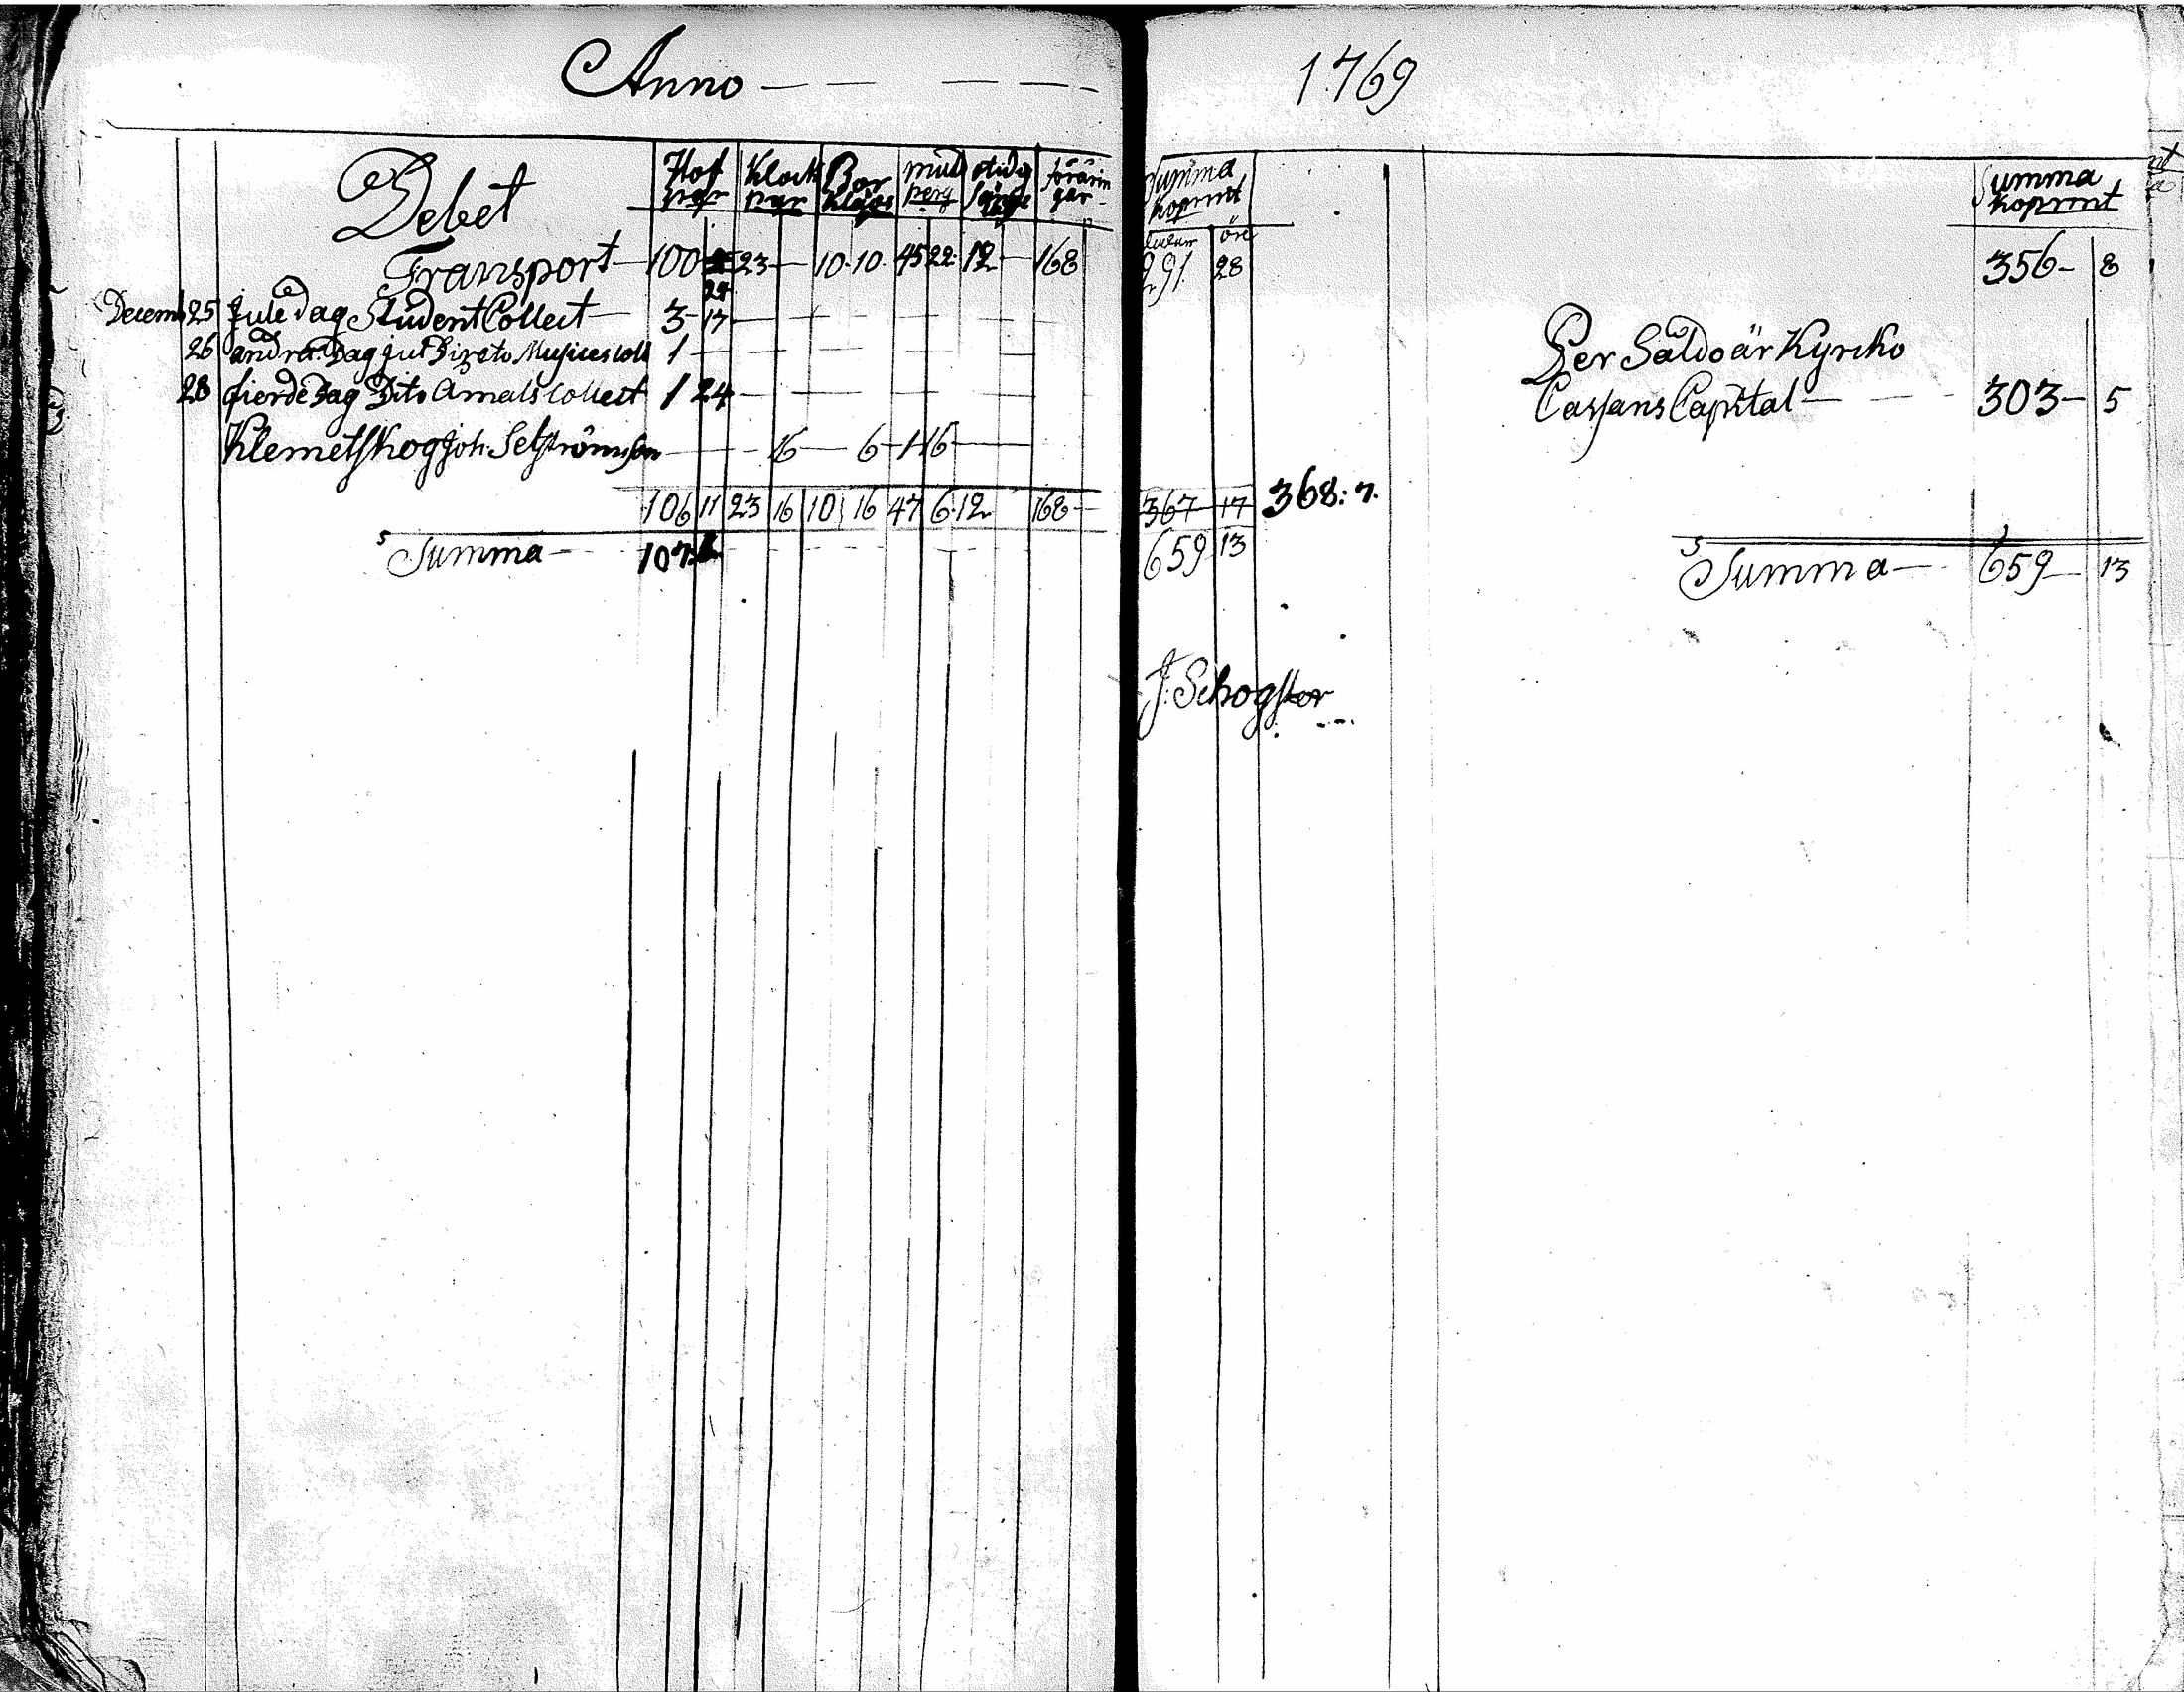 Anno — — — — -
1769
Debet Håf par Klock par Bor Kläde mull peng förärin gar
Transport — 100 23 — 10. 10. 45 22. 12 — 168
24
Decemb 25 Juledag Student Collect — 3- 17 —
26 andra Dag Jul Dito Musices Coll 1 —
28 fierde Dag Dito Amals Collect 1 24 —
Klemetskog Joh: — 16 — 6 — 1 16 —
106 11 23 16 10 16 47 6. 12 168 —
Summa — 107:
Summa kopmt
öre
291. 28
367 17 368: 7.
659 13
J: Schogster
Summa kopmt
356 — 8
Per Saldo är Kyrcko
Cassans Capital — 303 — 5
Summa — 659 — 13